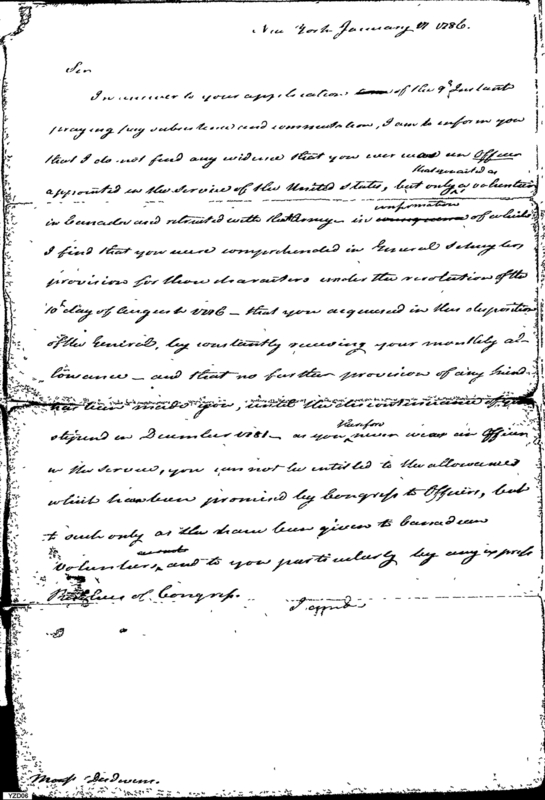 New York January 17 1786.
Sir
In answer to your application of the 9th Instant
praying for subsistence and commutation, I am to inform you
that I do not find any evidence that you ever was an Officer
that acted as
appointed in the service of the United States, but only a volunteer
confirmation
in Canada and retreated with the Army — in of which
I find that you were comprehended in General Schuylers
provision for those characters under the resolution of the
10th day of August 1776 — that you acquiesced in this disposition
of the General, by constantly receiving your monthly al-
lowance — and that no further provision of any kind
has been made you, until the discontinuance of
stipend in December 1781 — as you never was an Officer
therefore
in the service, you can not be entitled to the allowances
which has been promised by Congress to Officers, but
to such only as the have been given to Canadian
Volunteers, and to you particularly by any express
Resolves of Congress.
I am
Monsr
YZD06